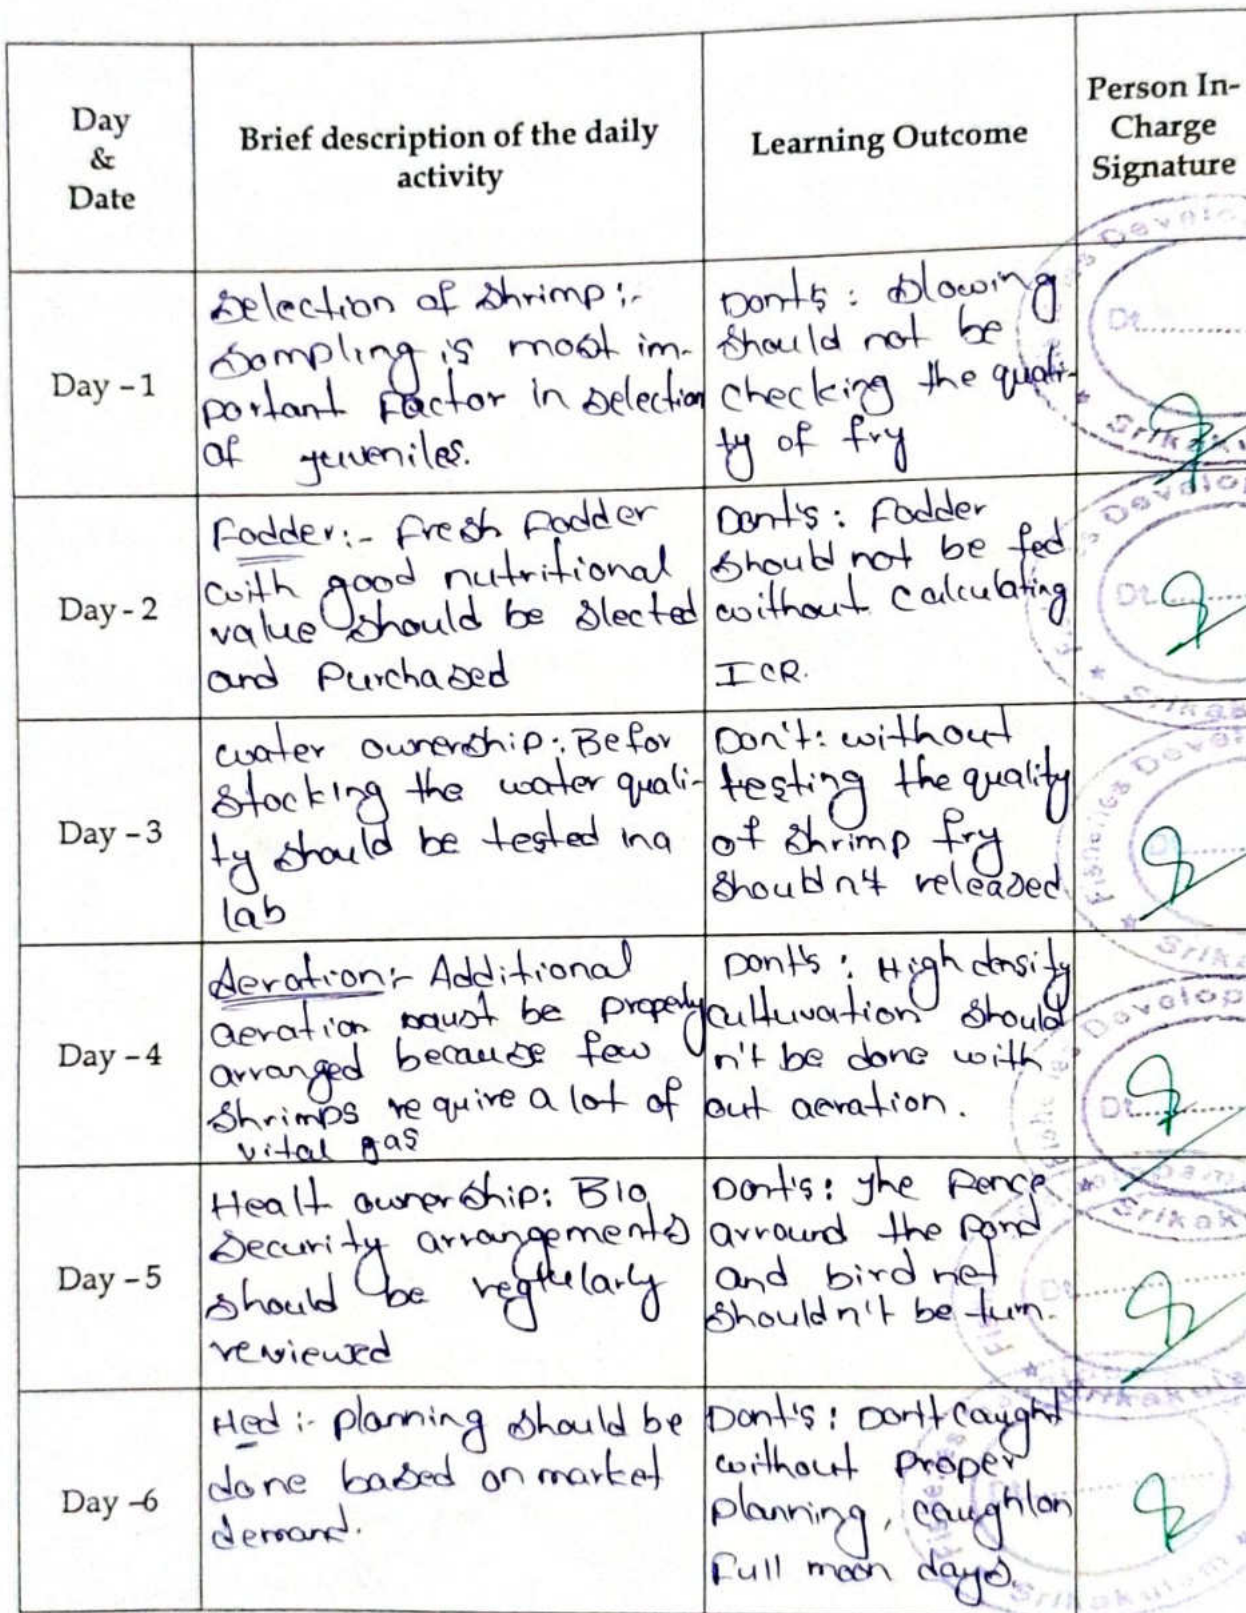 Day
&
Date
Brief description of the daily
activity
Learning Outcome
Person In-
Charge
Signature
Day - 1
Selection of Shrimp :-
Sampling is most im-
portant Factor in Selection
of juveniles.
Dont's : Slowing
should not be
checking the quali-
ty of fry
Day - 2
Fodder :- Fresh Fodder
with good nutritional
value should be slected
and Purchased
Dont's : Fodder
should not be fed
without calculating
ICR.
Day - 3
water ownership : Befor
stocking the water quali-
ty should be tested in a
lab
Don't : without
testing the quality
of shrimp fry
should n't released
Day - 4
Aeration :- Additional
aeration must be properly
arranged because few
shrimps require a lot of
vital gas
Dont's : High density
cultuvation should
n't be done with
out aeration.
Day - 5
Healt ownership : Bio
security arrangements
should be regularly
reviewed
Dont's : The Fence
arround the pond
and bird net
shouldn't be turn.
Day - 6
Hed :- planning should be
done based on market
demand.
Dont's : Don't caught
without proper
planning, caught on
Full moon days.
Dt
Srikakulam